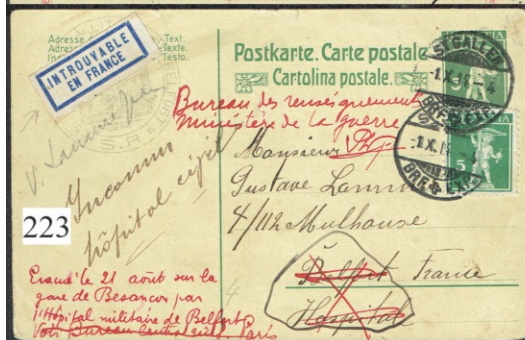 Adresse Text.
Adresse Texte.
Testo.
INTROUVABLE
EN FRANCE
Postkarte. Carte postale
Cartolina postale.
ST. GALLEN
-1.X.14.-4
BRF. EXP.
5
1.X.14
BRF. EXP.
5
Bureau des renseignements
Ministère de la guerre
Monsieur
Gustave
4/112 Mulhouse
Belfort France
Hospital
Inconnu
hôpital civil
223
Evacué le 21 août sur la
gare de Besançon par
l'Hôpital militaire de Belfort
Voir Bureau Central Paris